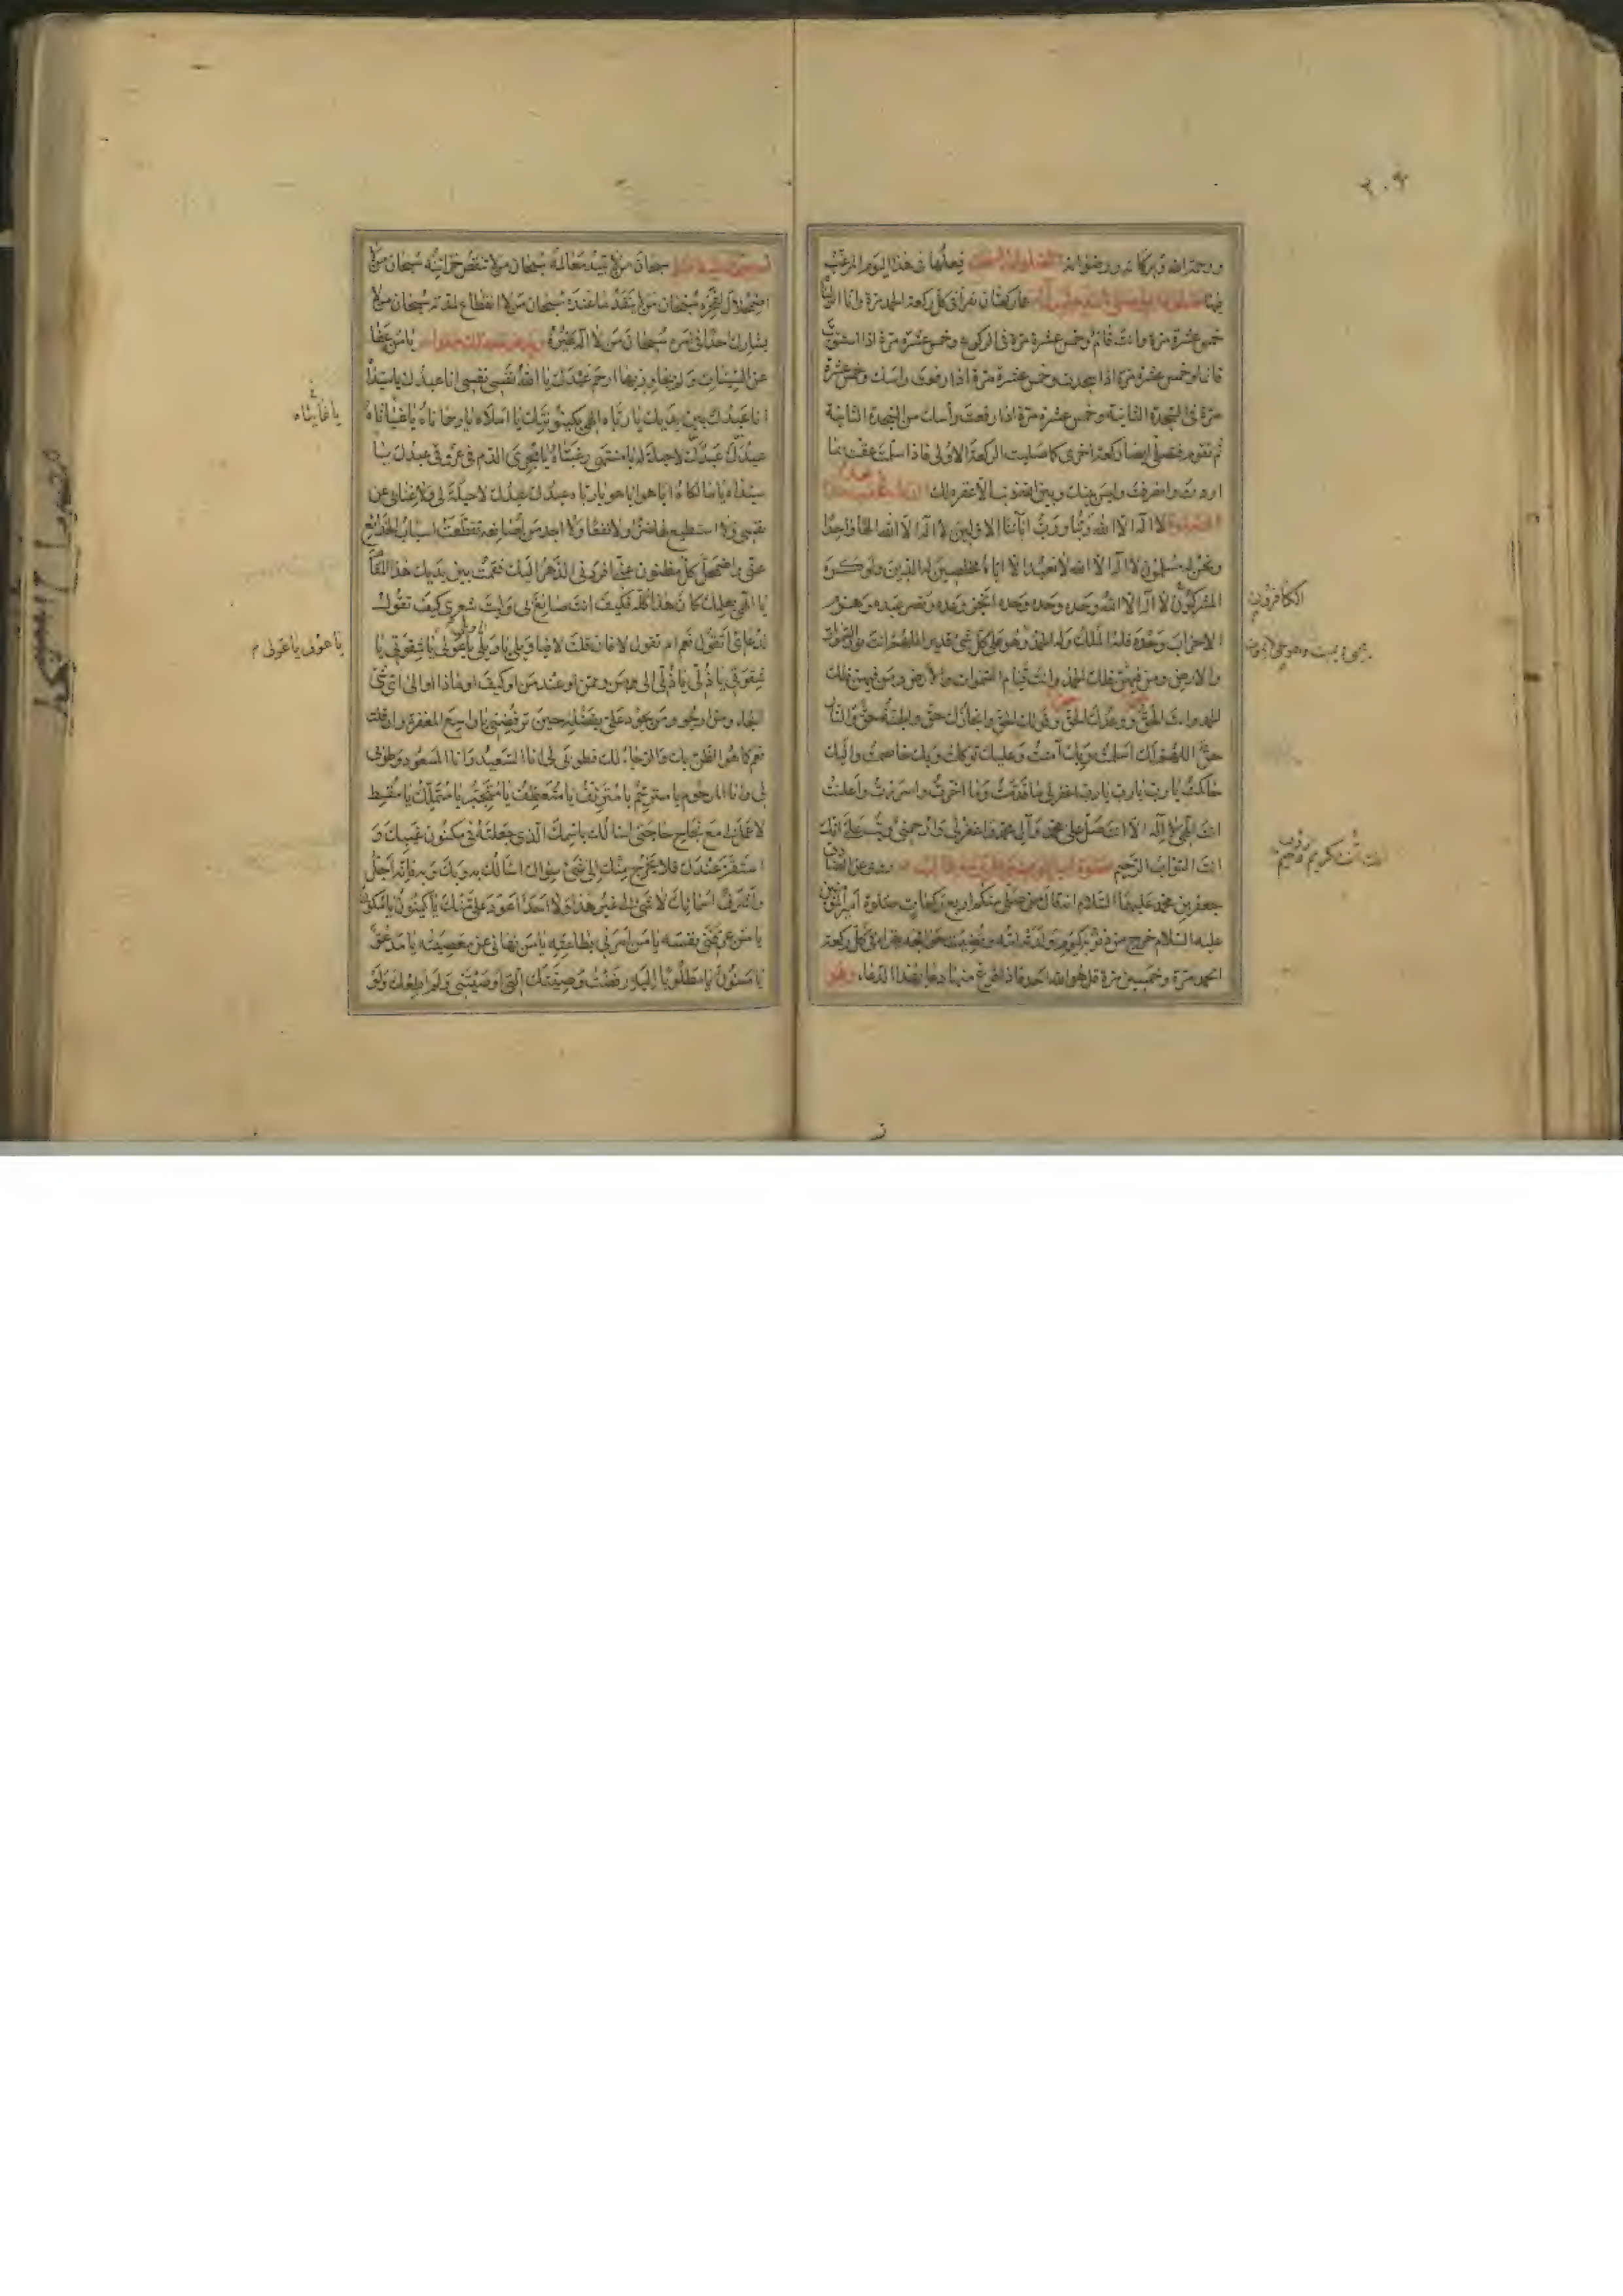 ٢٠٩
ورحمة الله وبركاته ورضوانه نفعلها فى هذا اليوم المرغب
فيها هما ركعتان تقرأ فى كل ركعة الحمد مرة وانا انزلناه
خمس عشرة مرة وانت قائم وخمس عشرة مرة فى الركوع وخمس عشرة مرة اذا استويت
قائما وخمس عشرة مرة اذا سجدت وخمس عشرة مرة اذا رفعت راسك وخمس عشرة
مرة فى السجدة الثانية وخمس عشرة مرة اذا رفعت رأسك من السجدة الثانية
ثم تقوم فتصلى ايضا ركعة اخرى كما صليت الركعة الاولى فاذا سلمت عقبت بما
اردت وانصرفت وليس بينك وبين الله ذنب الا غفره لك
لا اله الا الله ربنا ورب آبائنا الاولين لا اله الا الله الها واحدا
ونحن له مسلمون لا اله الا الله لا نعبد الا اياه مخلصين له الدين ولو كره
المشركون لا اله الا الله وحده وحده وحده انجز وعده ونصر عبده وهزم
الكافرون
الاحزاب وحده فله الملك وله الحمد وهو على كل شئ قدير اللهم انت نور السموات
والارض ومن فيهن فلك الحمد وانت قيام السموات والارض ومن فيهن فلك
الحمد وانت الحق ووعدك الحق وقولك الحق وانجازك حق والجنة حق والنار
حق اللهم لك اسلمت وبك آمنت وعليك توكلت وبك خاصمت واليك
حاكمت يا رب يا رب يا رب اغفر لى ما قدمت وما اخرت واسررت واعلنت
انت الهى لا اله الا انت صل على محمد وآل محمد واغفر لى وارحمنى وتب على انك
انت التواب الرحيم روى عن الصادق
جعفر بن محمد عليهما السلام انه قال من صلى منكم اربع ركعات صلوة امير المؤمنين
عليه السلام خرج من ذنوبه كيوم ولدته امه وقضيت حوائجه يقرا فى كل ركعة
الحمد مرة وخمسين مرة قل هو الله احد فاذا فرغ منها دعا بهذا الدعاء وهو
سبحان من لا تبيد معالمه سبحان من لا تنقص خزائنه سبحان من لا
اضمحلال لفخره سبحان من لا ينفد ما عنده سبحان من لا انقطاع لمدته سبحان من لا
يشارك احدا فى امره سبحان من لا اله غيره يا من عفا
عن السيئات ولم يجاز بها ارحم عبدك يا الله نفسى نفسى انا عبدك يا سيداه
انا عبدك بين يديك يا رباه الهى بكينونتك يا املاه يا رحماناه يا غياثاه
يا غايتاه
عبدك عبدك لا حيلة له يا منتهى رغبتاه يا مجرى الدم فى عروق عبدك يا
سيداه يا مالكاه ايا هو ايا هو يا رباه عبدك عبدك لا حيلة لى ولا غناء بى عن
نفسى ولا استطيع لها ضرا ولا نفعا ولا اجد من اصانعه تقطعت اسباب الخدائع
عنى واضمحل كل مظنون عنى افردنى الدهر اليك فقمت بين يديك هذا المقام
يا الهى بعلمك كان هذا كله فكيف انت صانع بى وليت شعرى كيف تقول
لدعائى اتقول نعم ام تقول لا فان قلت لا فيا ويلى يا ويلى يا ويلى يا عولى يا شقوتى يا
يا عولى يا عولى م
شقوتى يا ذلى يا ذلى الى من وممن او عند من او كيف او ماذا او الى اى شئ
الجاء ومن ارجو ومن يجود على بفضله حين ترفضنى يا واسع المغفرة وان قلت
نعم كما هو الظن بك والرجاء لك فطوبى لى انا السعيد وانا المسعود وطوبى
لى وانا المرحوم يا مترحم يا مترئف يا متعطف يا متجبر يا متملك يا مقسط
لا عمل لى مع نجاح حاجتى اسالك باسمك الذى جعلته فى مكنون غيبك و
استقر عندك فلا يخرج منك الى شئ سواك اسالك به وبك وبه فانه اجل
واشرف اسمائك لا شئ لى غير هذا ولا احد اعود على منك يا كينون يا مكون
يا من عرفنى نفسه يا من امرنى بطاعته يا من نهانى عن معصيته يا مدعو
يا مسئول يا مطلوبا اليه رفضت وصيتك التى اوصيتنى ولم اطعك ولو